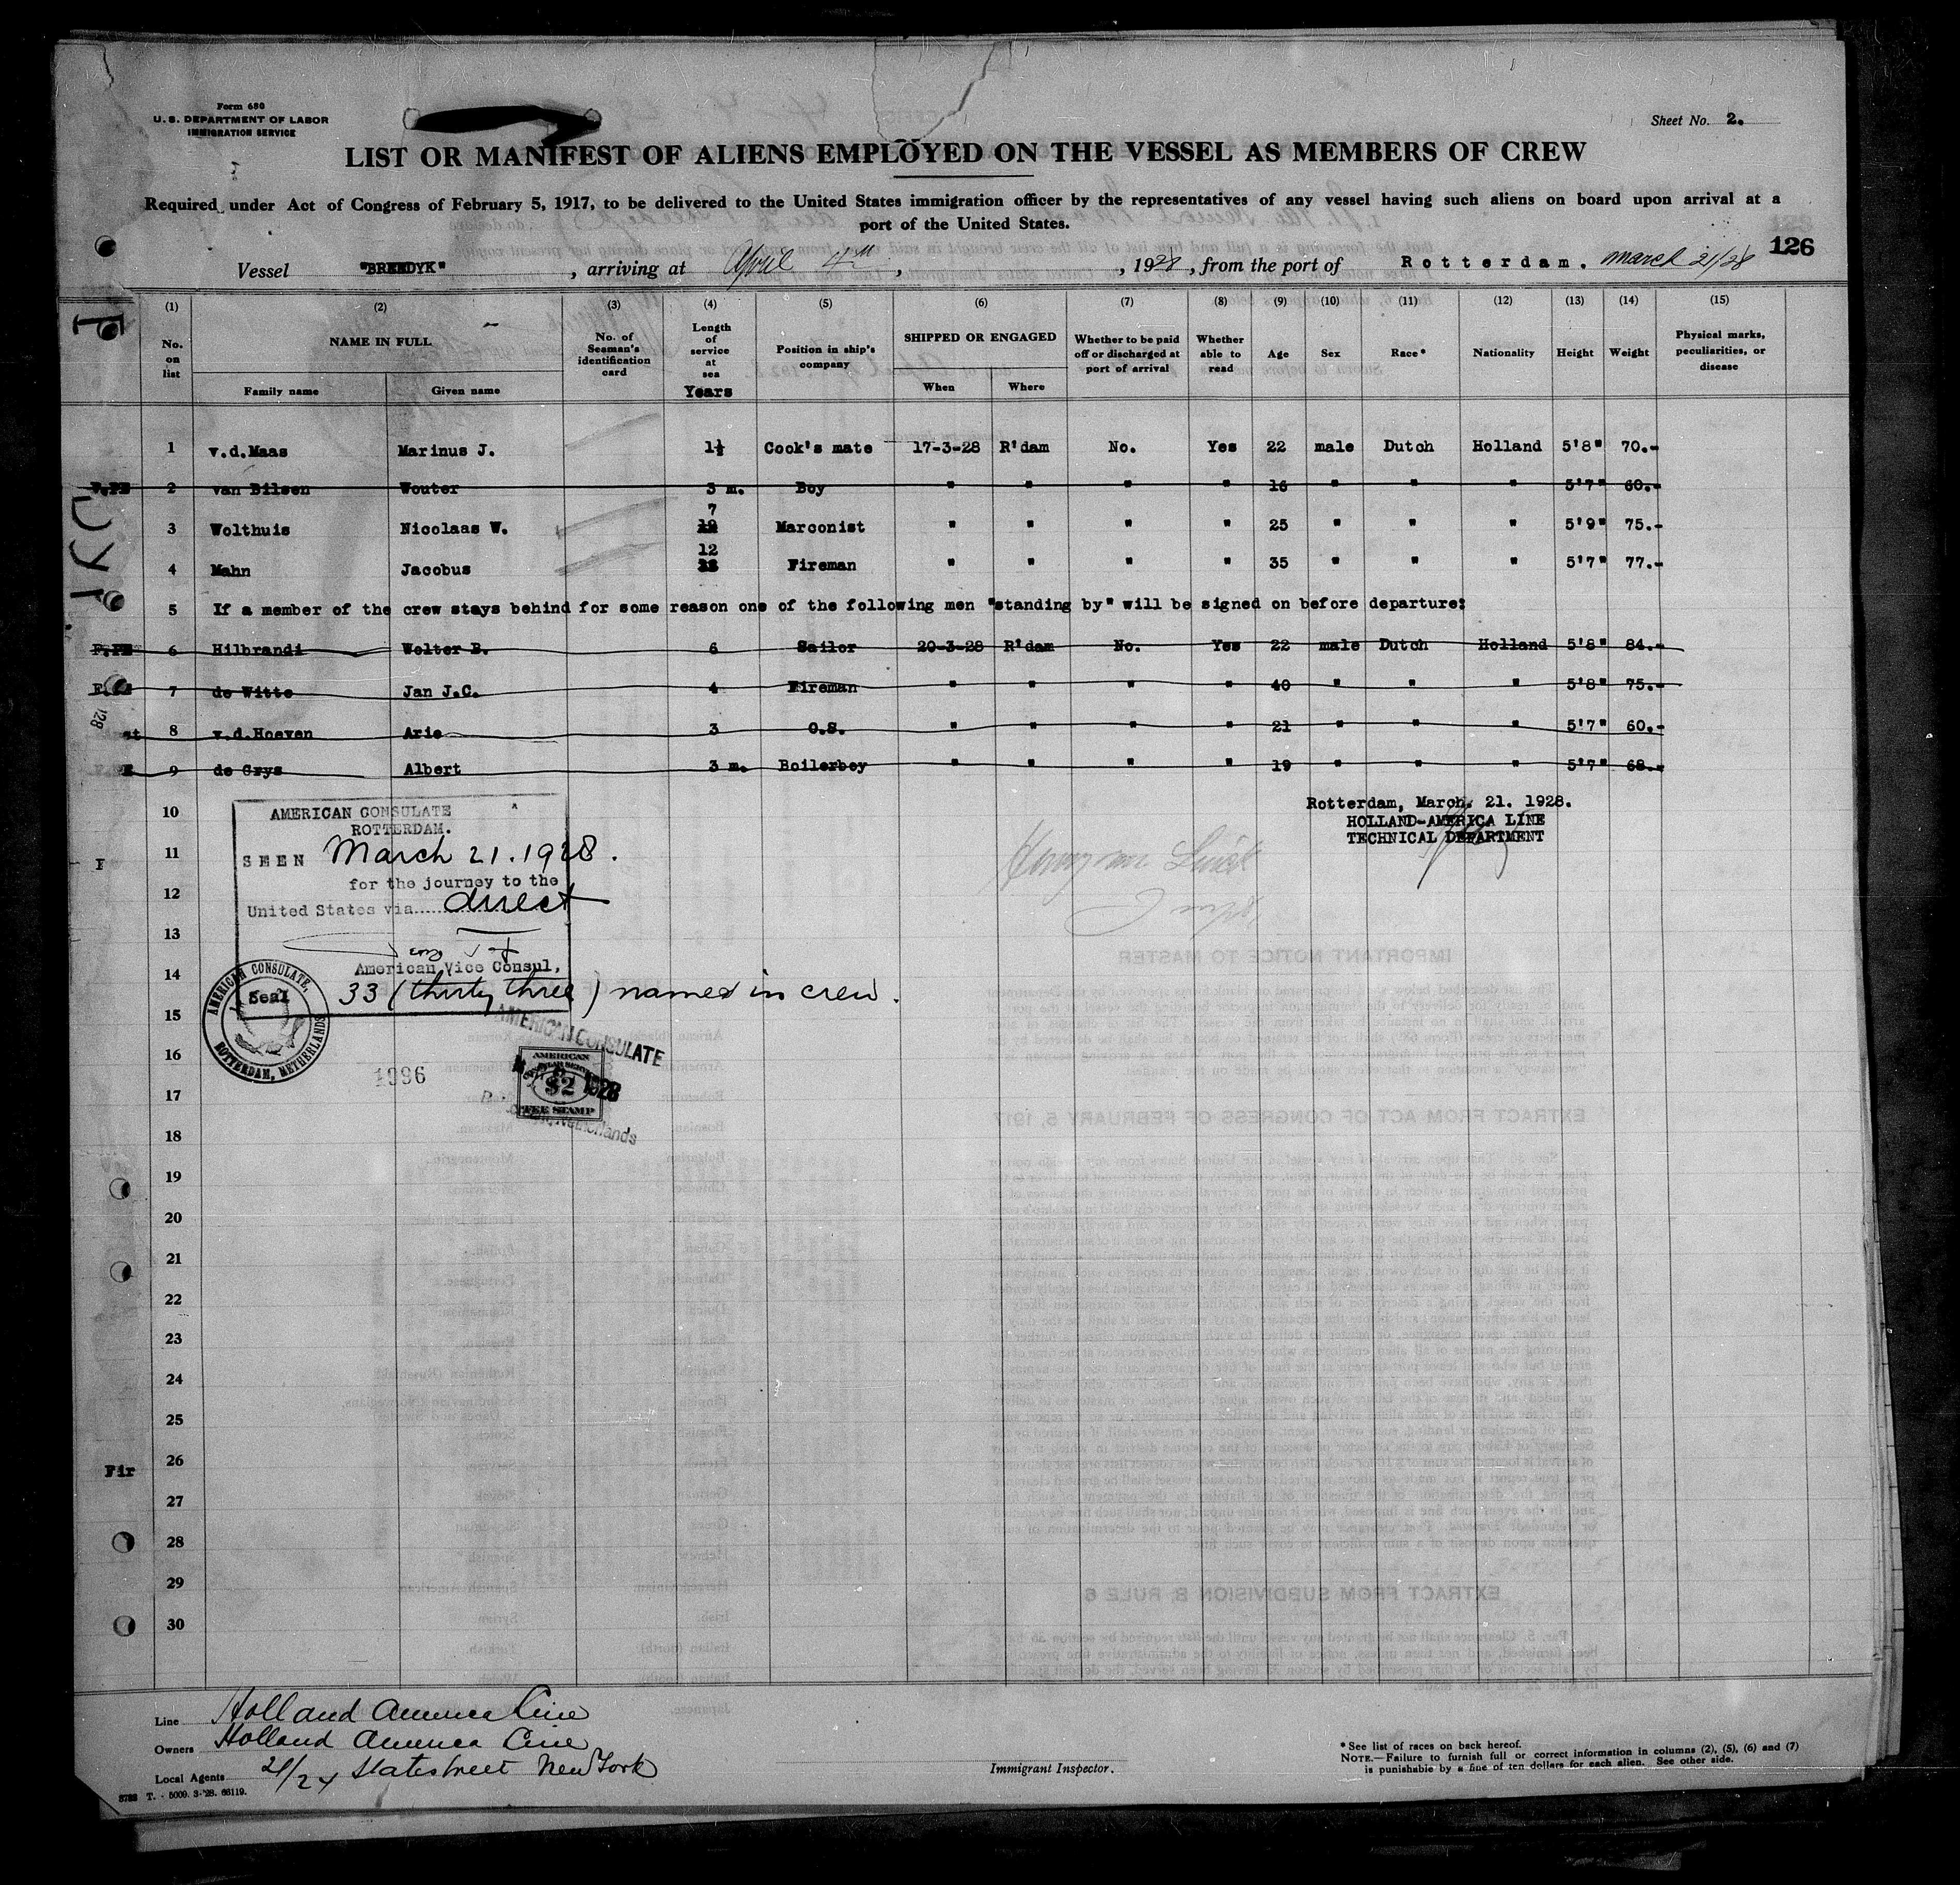 Form 680
U. S. DEPARTMENT OF LABOR
IMMIGRATION SERVICE
Sheet No. 2.
LIST OR MANIFEST OF ALIENS EMPLOYED ON THE VESSEL AS MEMBERS OF CREW
Required under Act of Congress of February 5, 1917, to be delivered to the United States immigration officer by the representatives of any vessel having such aliens on board upon arrival at a
port of the United States.
126
Vessel "BREEDYK", arriving at April 4th, 1928, from the port of Rotterdam. March 21/28
(1) (2) (3) (4) (5) (6) (7) (8) (9) (10) (11) (12) (13) (14) (15)
No. on list
NAME IN FULL
Family name Given name
No. of Seaman's identification card
Length of service at sea Years
Position in ship's company
SHIPPED OR ENGAGED
When Where
Whether to be paid off or discharged at port of arrival
Whether able to read
Age Sex Race* Nationality Height Weight
Physical marks, peculiarities, or disease
1 v.d.Maas Marinus J. 1½ Cook's mate 17-3-28 R'dam No. Yes 22 male Dutch Holland 5'8" 70.-
2 van Bilsen Wouter 3 m. Boy " " " " 16 " " " 5'7" 60.-
3 Wolthuis Nicolaas W. 7 Marconist " " " " 25 " " " 5'9" 75.-
4 Mahn Jacobus 12 Fireman " " " " 35 " " " 5'7" 77.-
5 If a member of the crew stays behind for some reason one of the following men "standing by" will be signed on before departure:
6 Hilbrandi Wolter B. 6 Sailor 20-3-28 R'dam No. Yes 22 male Dutch Holland 5'8" 84.-
7 de Witte Jan J.C. 4 Fireman " " " " 40 " " " 5'8" 75.-
8 v.d.Hoeven Arie 3 O.S. " " " " 21 " " " 5'7" 60.-
9 de Grys Albert 3 m. Boilerboy " " " " 19 " " " 5'7" 68.-
10
11
12
13
14
15
16
17
18
19
20
21
22
23
24
25
26
27
28
29
30
Rotterdam, March. 21. 1928.
HOLLAND-AMERICA LINE
TECHNICAL DEPARTMENT
AMERICAN CONSULATE
ROTTERDAM.
SEEN March 21. 1928.
for the journey to the
United States via direct
American Vice Consul,
33 (thirty three) names in crew.
AMERICAN CONSULATE,
Seal
ROTTERDAM, NETHERLANDS
1996
AMERICAN CONSULATE
AMERICAN
$2
FEE STAMP
1928
Netherlands
Fir
Line Holland America Line
Owners Holland America Line
Local Agents 21/24 Statestreet New York
Immigrant Inspector.
*See list of races on back hereof.
NOTE.—Failure to furnish full or correct information in columns (2), (5), (6) and (7)
is punishable by a fine of ten dollars for each alien. See other side.